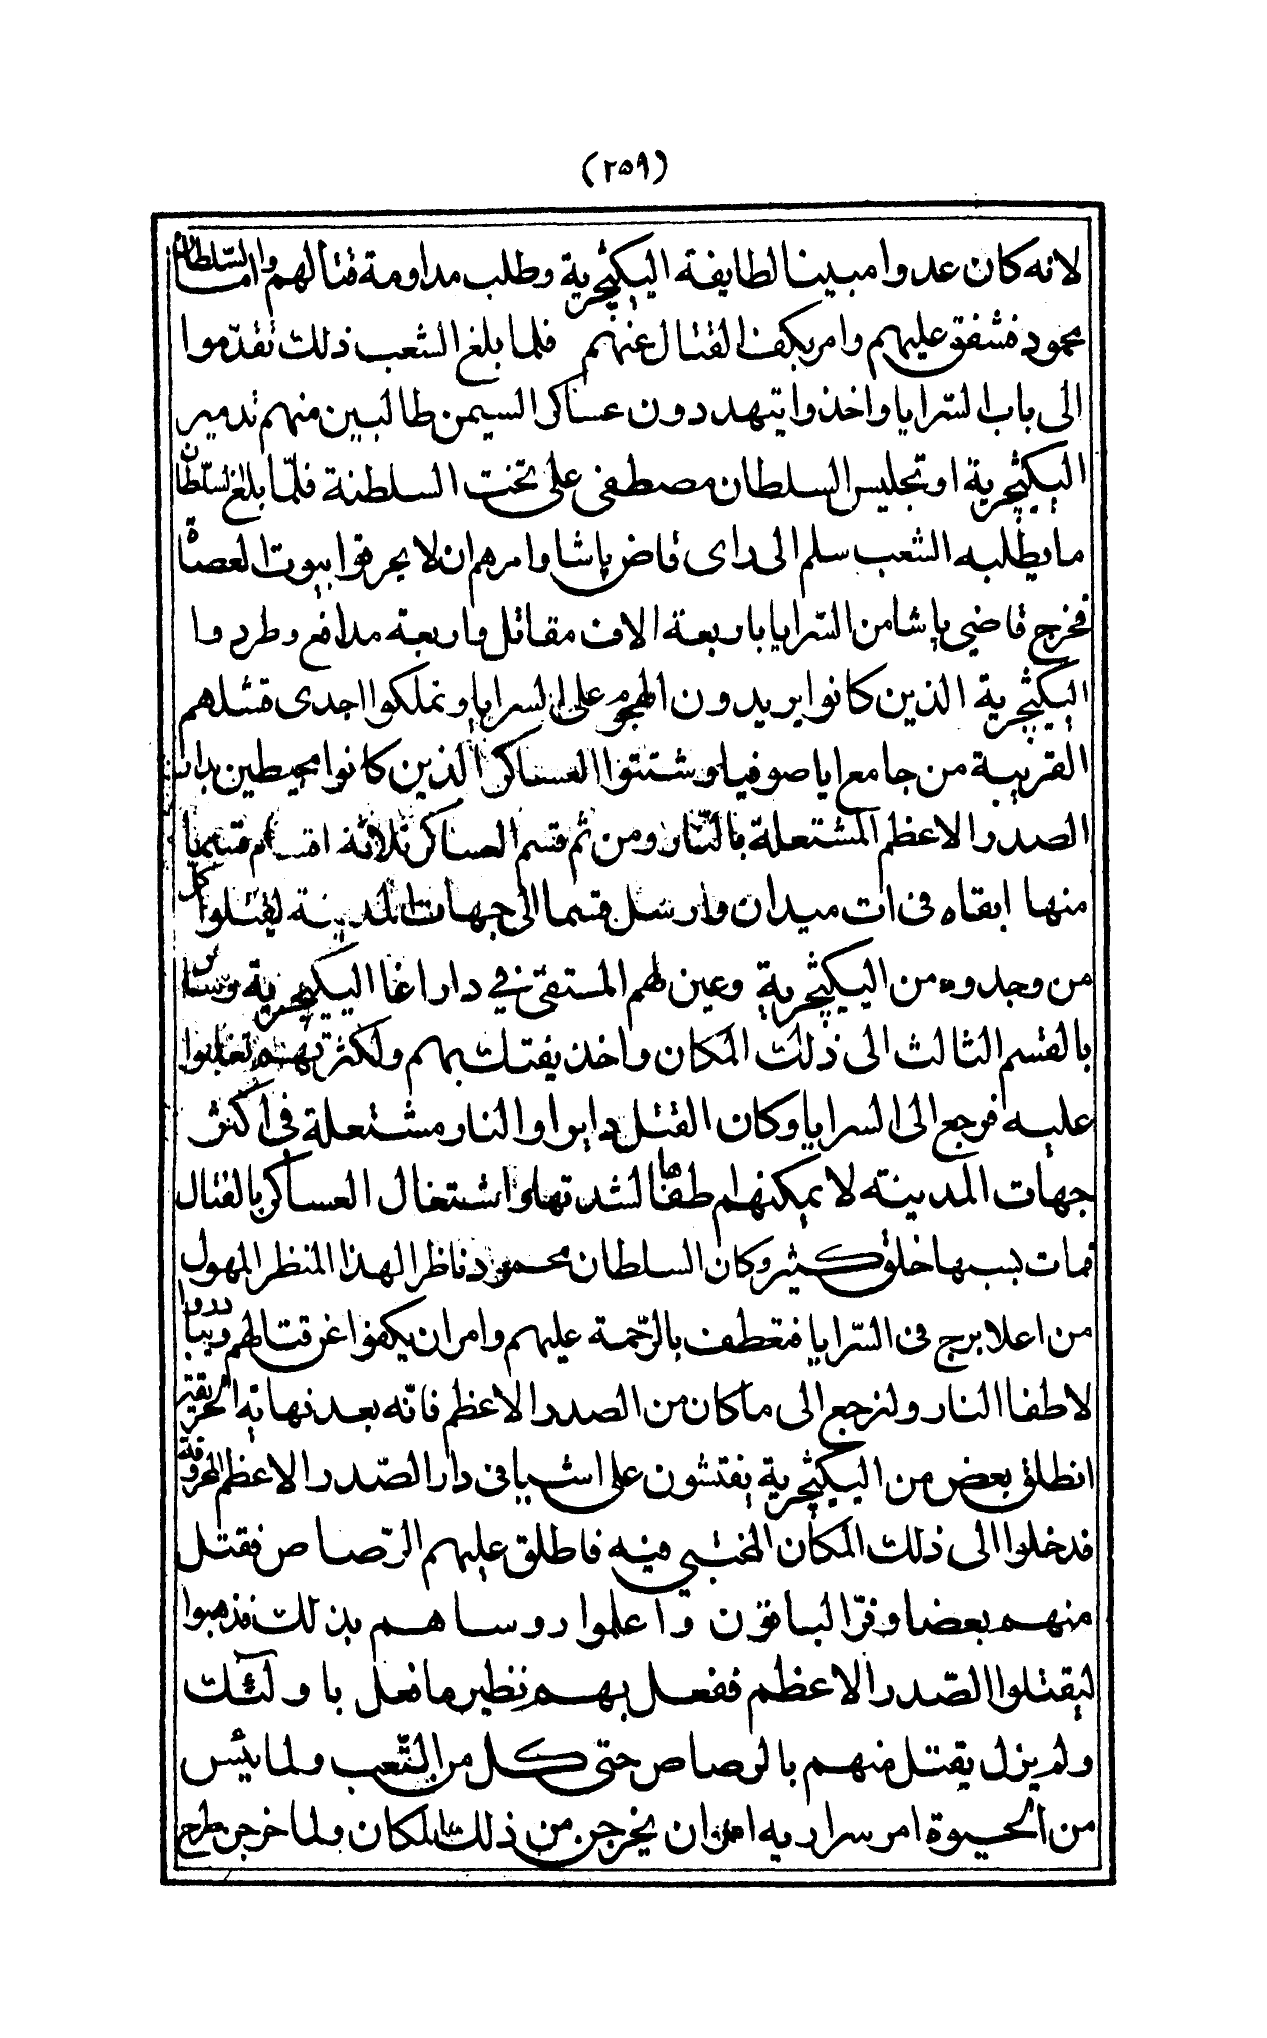 (٢٥٩)
لانه كان عدوا مبينا لطايفة اليكيچرية وطلب مداومة قتالهم واما السلطان
محمود فشفق عليهم وامر بكف القتال عنهم فلما بلغ الشعب ذلك تقدّموا
الى باب السّرايا واخذوا يتهددون عساكر السيمن طالبين منهم تدمير
اليكيچرية او تجليس السلطان مصطفى على تخت السلطنة فلمّا بلغ السّلطان
ما يطلبه الشعب سلم الى راى قاض پاشا وامرهم ان لا يحرقوا بيوت العصاة
فخرج قاضي پاشا من السّرايا باربعة الاف مقاتل واربعة مدافع وطردوا
اليكيچرية الذين كانوا يريدون الهجوم على السرايا وتملكوا احدى قشلهم
القريبة من جامع ايا صوفيا وشتتوا العساكر الذين كانوا محيطين بدار
الصدر الاعظم المشتعلة بالنّار ومن ثم قسم العساكر ثلاثة اقسام قسما
منها ابقاه فى ات ميدان وارسل قسما الى جهات المدينة ليقتلوا كل
من وجدوه من اليكيچرية وعين لهم الملتقى في دار اغا اليكيچرية وسا
بالقسم الثالث الى ذلك المكان واخذ يفتك بهم ولكثرتهم تغلبوا
عليه فرجع الى السرايا وكان القتل دايرا والنار مشتعلة فى اكثر
جهات المدينة لا يمكنهم اطفاها لشدتها واشتغال العساكر بالقتال
فمات بسببها خلق كثير وكان السلطان محمود ناظرا لهذا المنظر المهول
من اعلا برج فى السّرايا فتعطف بالرّحمة عليهم وامر ان يكفوا عن قتالهم ويبادروا
لاطفا النار ولنرجع الى ما كان من الصدر الاعظم فانّه بعد نهاية الحريق
انطلق بعض من اليكيچرية يفتشون على اشيا فى دار الصّدر الاعظم المحروقة
فدخلوا الى ذلك المكان المختبي فيه فاطلق عليهم الرّصاص فقتل
منهم بعضا وفرّ الباقون واعلموا روساهم بذلك فذهبوا
ليقتلوا الصّدر الاعظم ففعل بهم نظير ما فعل باولئك
ولم يزل يقتل منهم بالرصاص حتى كل من الشّعب ولما يئس
من الحيوة امر سراريه ان يخرجن من ذلك المكان ولما خرجن طرح